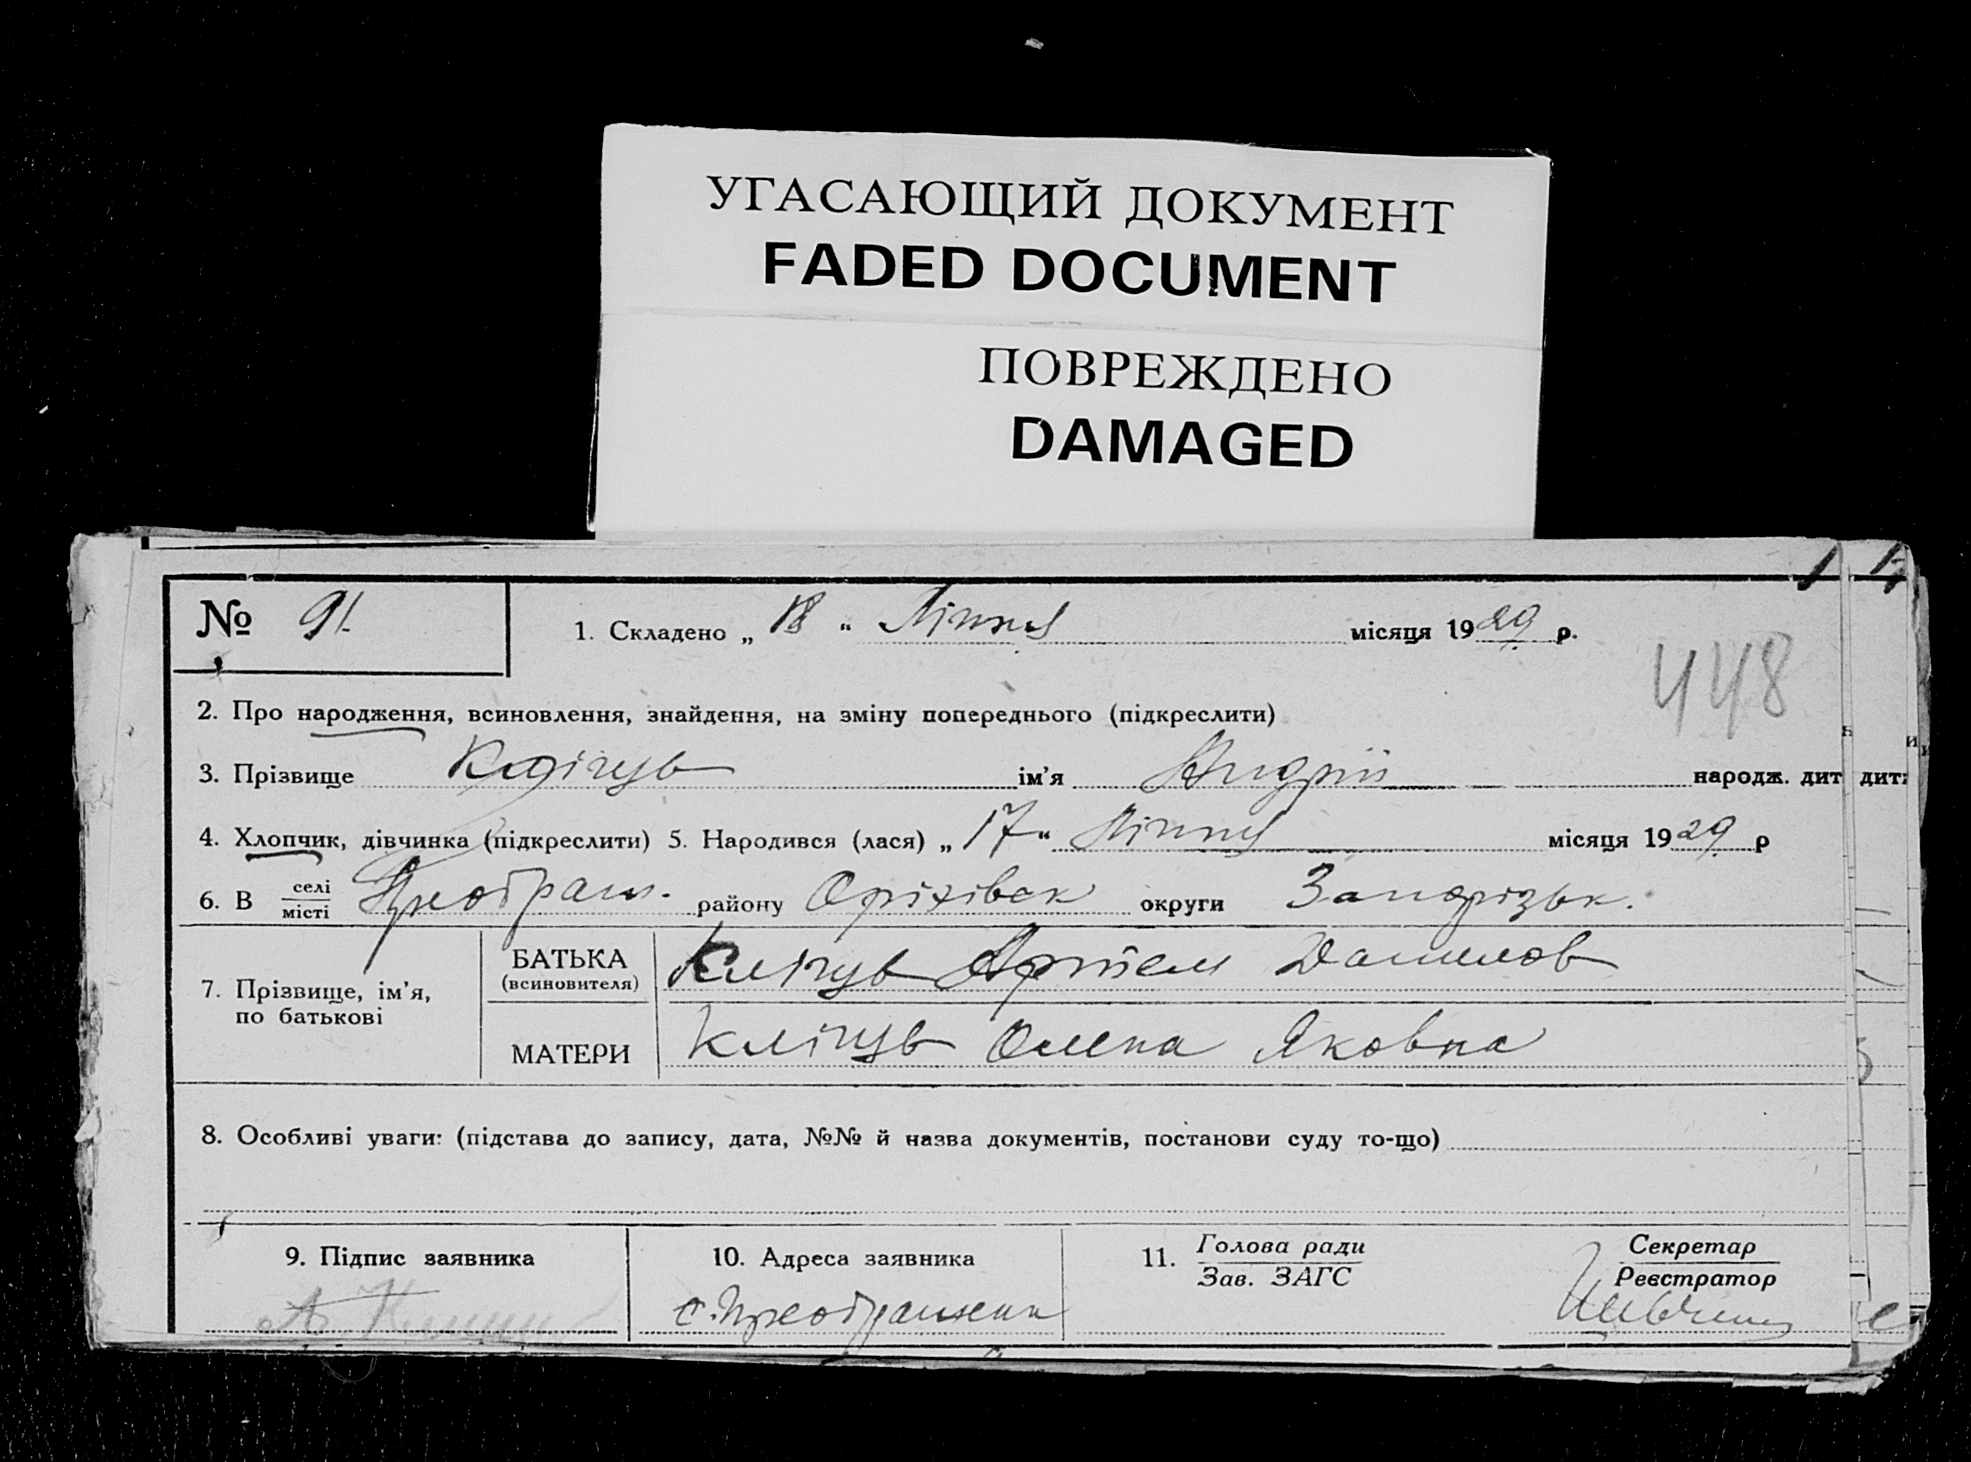 УГАСАЮЩИЙ ДОКУМЕНТ
FADED DOCUMENT
ПОВРЕЖДЕНО
DAMAGED
№ 91.
1. Складено „ 18 “ Липня місяця 1929 р.
448
2. Про народження, всиновлення, знайдення, на зміну попереднього (підкреслити)
3. Прізвище ім'я Андрій народж. дит дит
4. Хлопчик, дівчинка (підкреслити) 5. Народився (лася) „ 17 “ Липня місяця 1929 р
6. В селі місті Преображ. району Оріхівськ округи Запорізьк.
7. Прізвище, ім'я, по батькові
БАТЬКА (всиновителя) Артем Данилов
МАТЕРИ Олена Яковна
8. Особливі уваги: (підстава до запису, дата, №№ й назва документів, постанови суду то-що)
9. Підпис заявника
10. Адреса заявника
с. Преображенк
11. Голова ради Зав. ЗАГС
Секретар Реєстратор